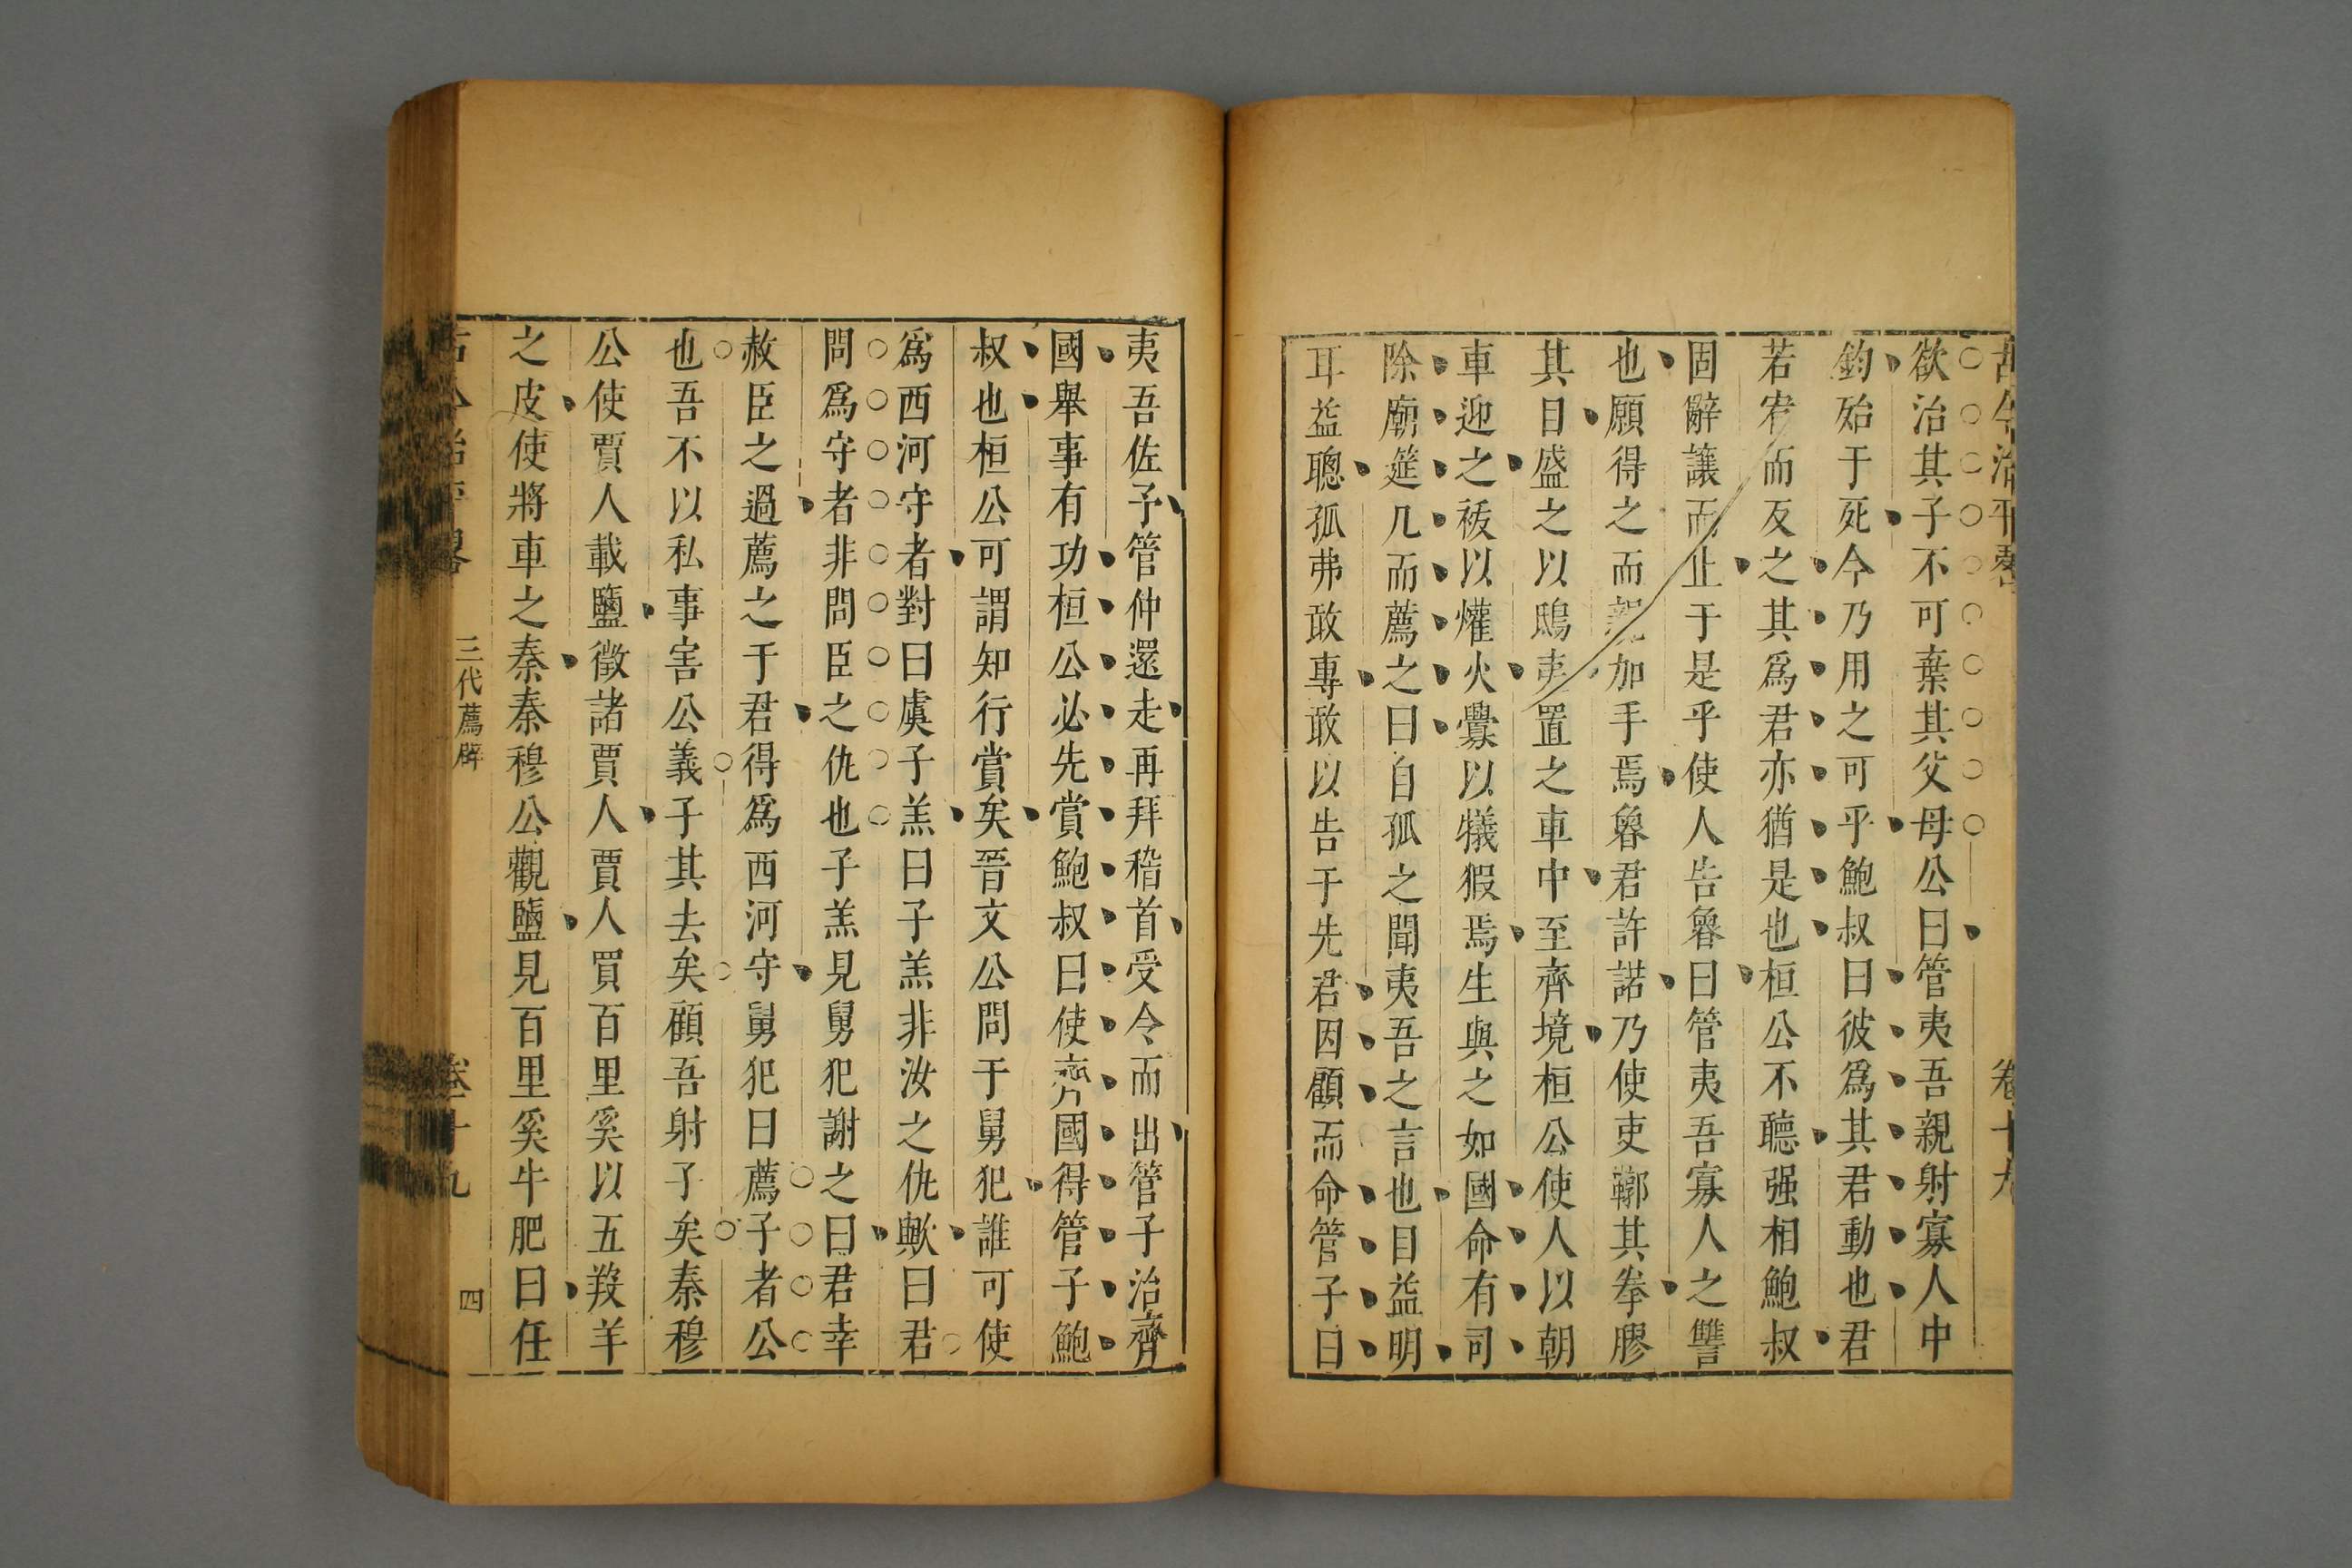 古今治平略 卷十九
欲治其子不可棄其父母公曰管夷吾親射寡人中
鈎殆于死今乃用之可乎鮑叔曰彼爲其君動也君
若宥而反之其爲君亦猶是也桓公不聽强相鮑叔
固辭讓而止于是乎使人告魯曰管夷吾寡人之讐
也願得之而親加手焉魯君許諾乃使吏鞹其拳膠
其目盛之以鴟夷置之車中至齊境桓公使人以朝
車迎之祓以爟火釁以犧猳焉生與之如國命有司
除廟筵几而薦之曰自孤之聞夷吾之言也目益明
耳益聰孤弗敢專敢以告于先君因顧而命管子曰
夷吾佐予管仲還走再拜稽首受令而出管子治齊
國舉事有功桓公必先賞鮑叔曰使齊國得管子鮑
叔也桓公可謂知行賞矣晉文公問于舅犯誰可使
爲西河守者對曰虞子羔曰子羔非汝之仇歟曰君
問爲守者非問臣之仇也子羔見舅犯謝之曰君幸
赦臣之過薦之于君得爲西河守舅犯曰薦子者公
也吾不以私事害公義子其去矣顧吾射子矣秦穆
公使賈人載鹽徵諸賈人賈人買百里奚以五羖羊
之皮使將車之秦秦穆公觀鹽見百里奚牛肥曰任
古今治平畧 三代薦辟 卷十九 四